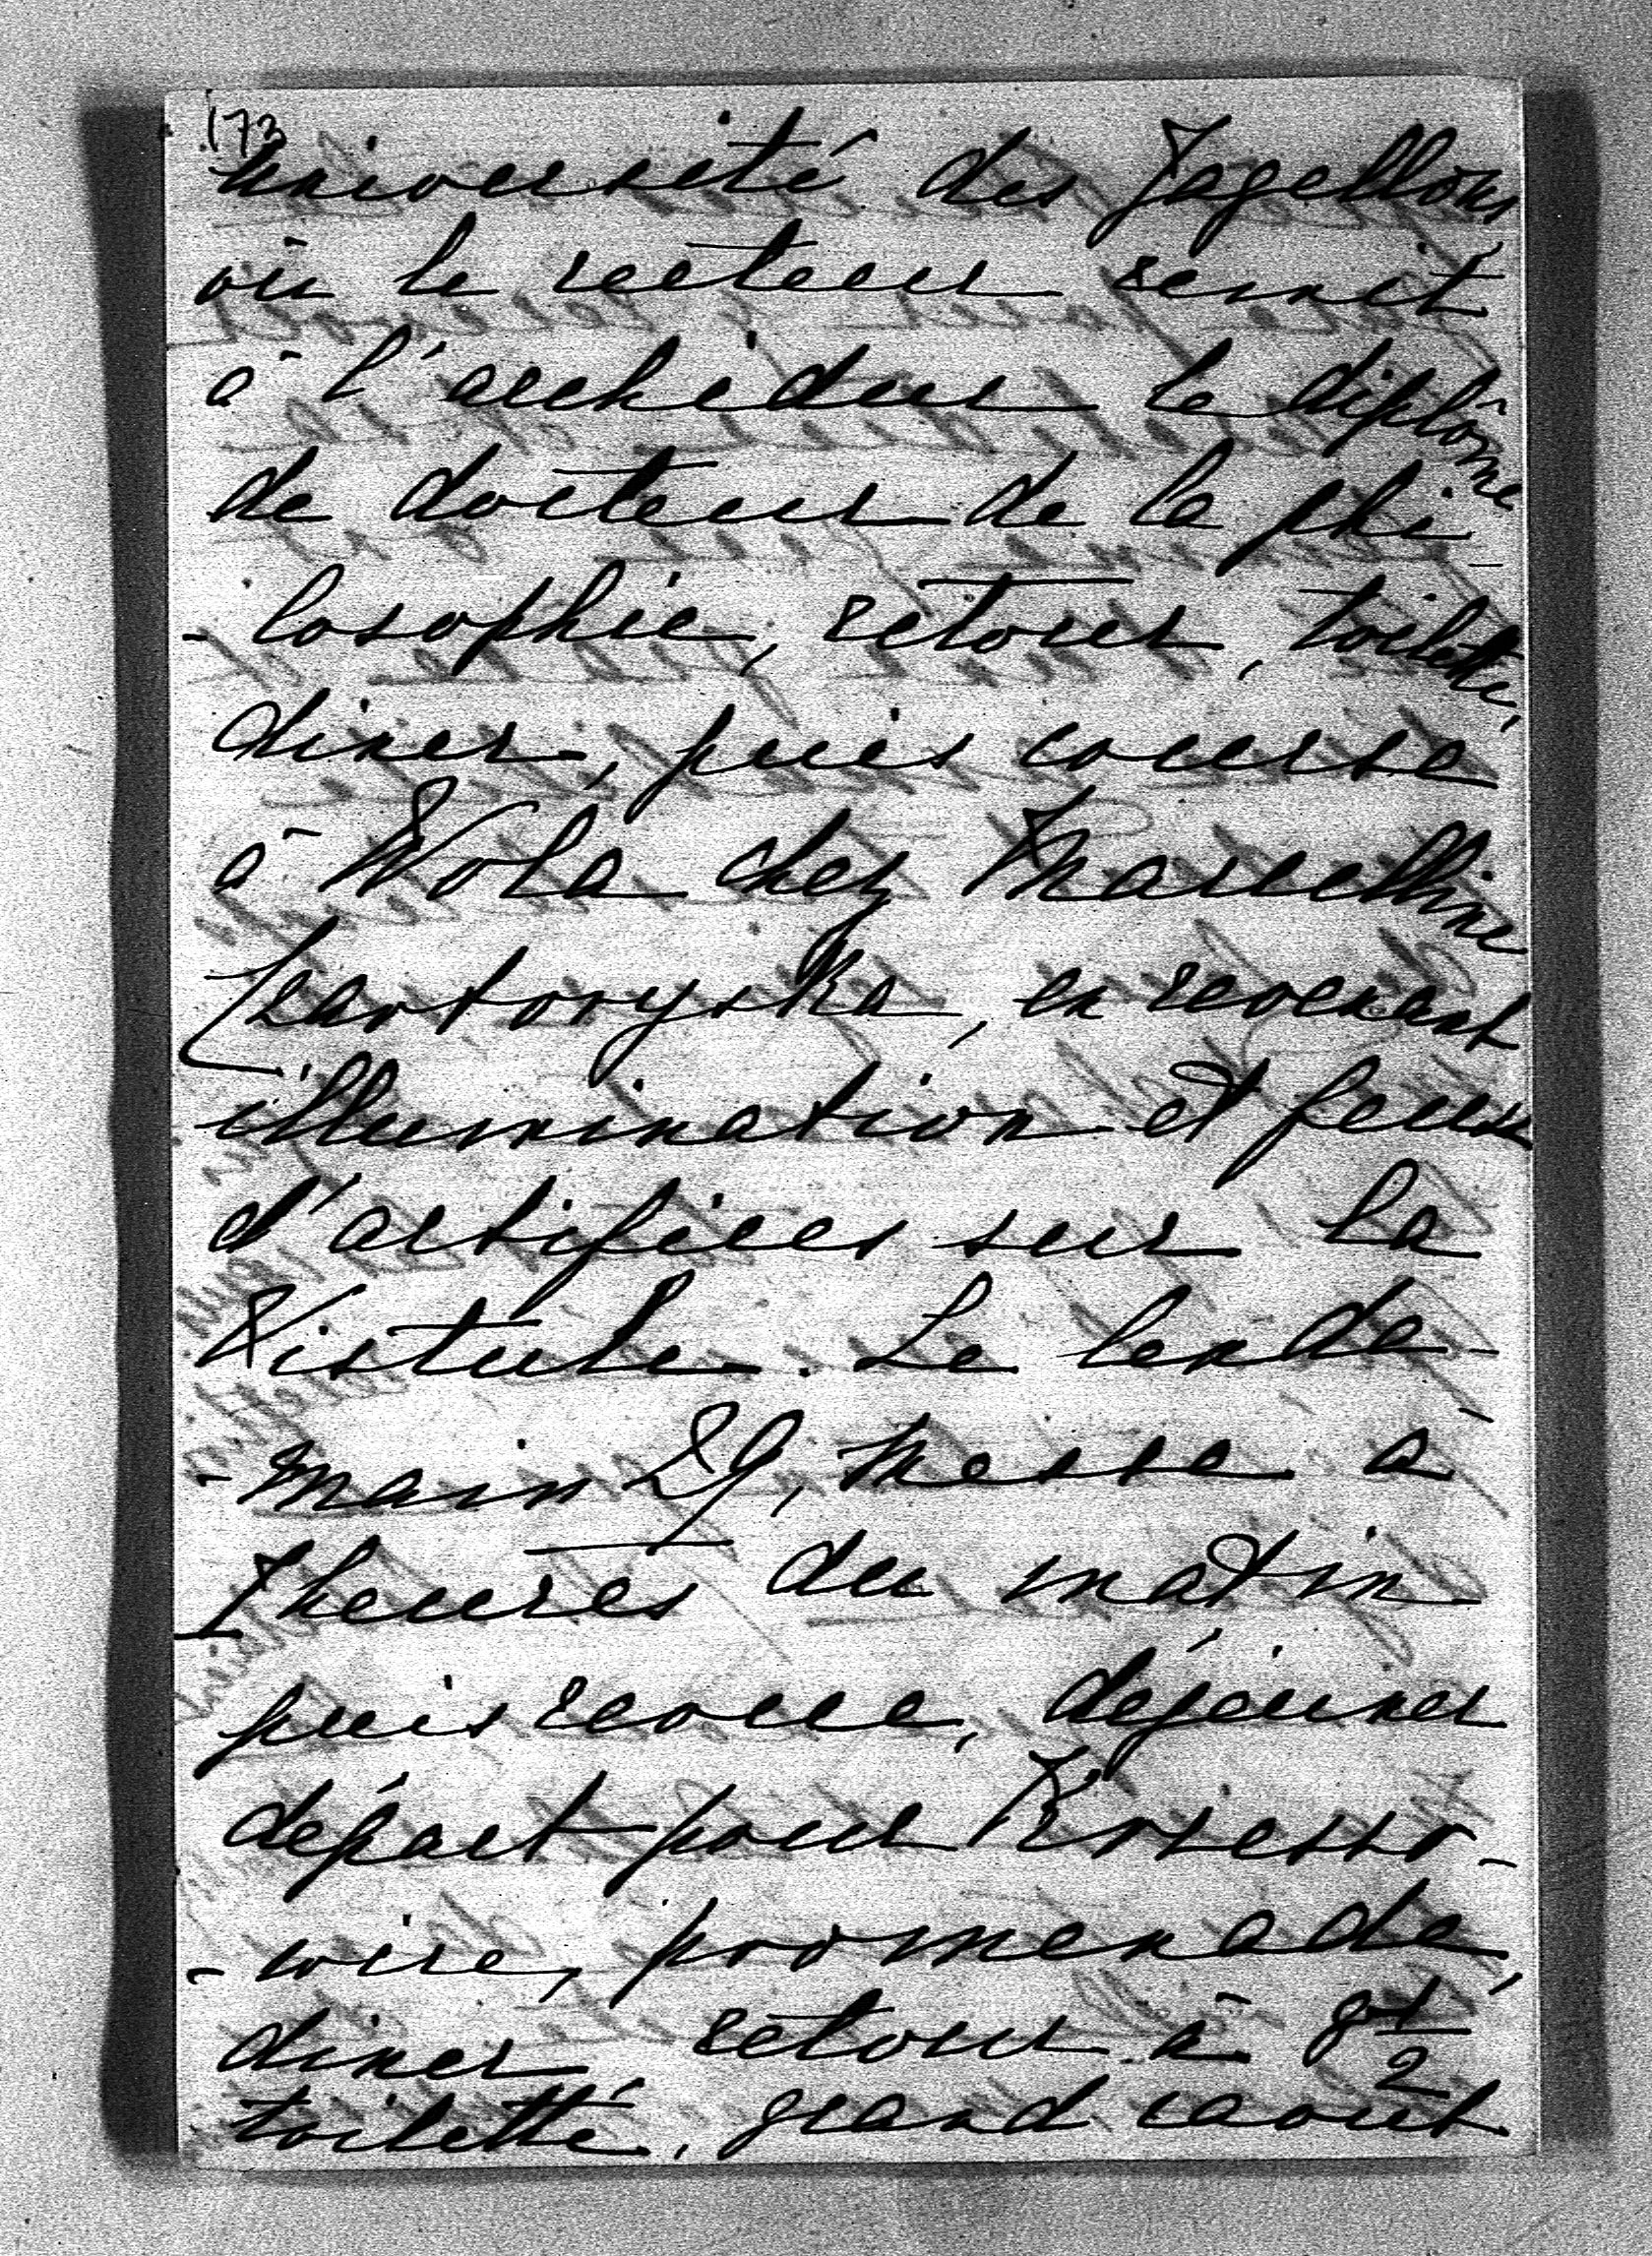 173
université des Jagellons
où le recteur remit
à l'archiduc le diplôme
de docteur de la phi
- losophie, retour, toilette,
diner, puis course
à Wola chez Marcelline
Czartoryska, en revenant
illumination et feux
d'artifices sur la
Vistule. Le lende-
- main 29, messe à
7 heures du matin
puis revue, déjeuner
départ pour Krzeszo-
- wice, promenade,
diner retour à 8 1/2
toilette, grand raout